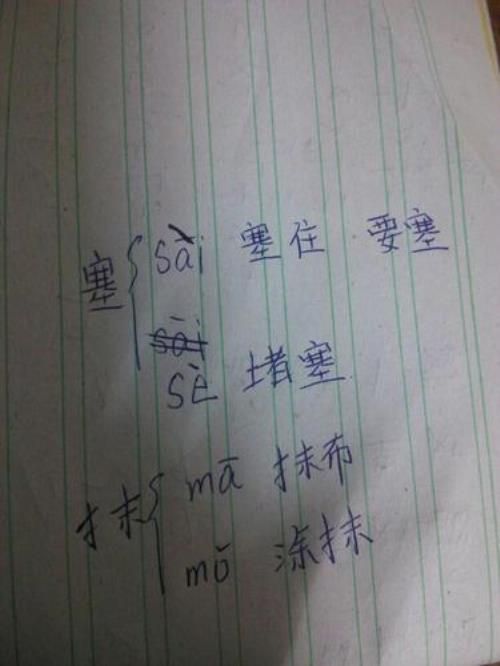 塞 { sài 塞住 要塞
sè 堵塞
抹 { mā 抹布
mǒ 涂抹